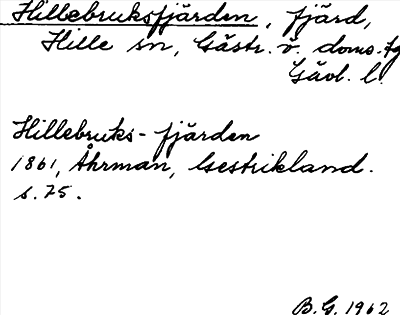 Hillebruksfjärden, fjärd,
Hille sn, Gästr. v. doms.tg
Gävl. l.
Hillebruks-fjärden
1861, Åhrman, Gestrikland.
s. 75.
B.G. 1962